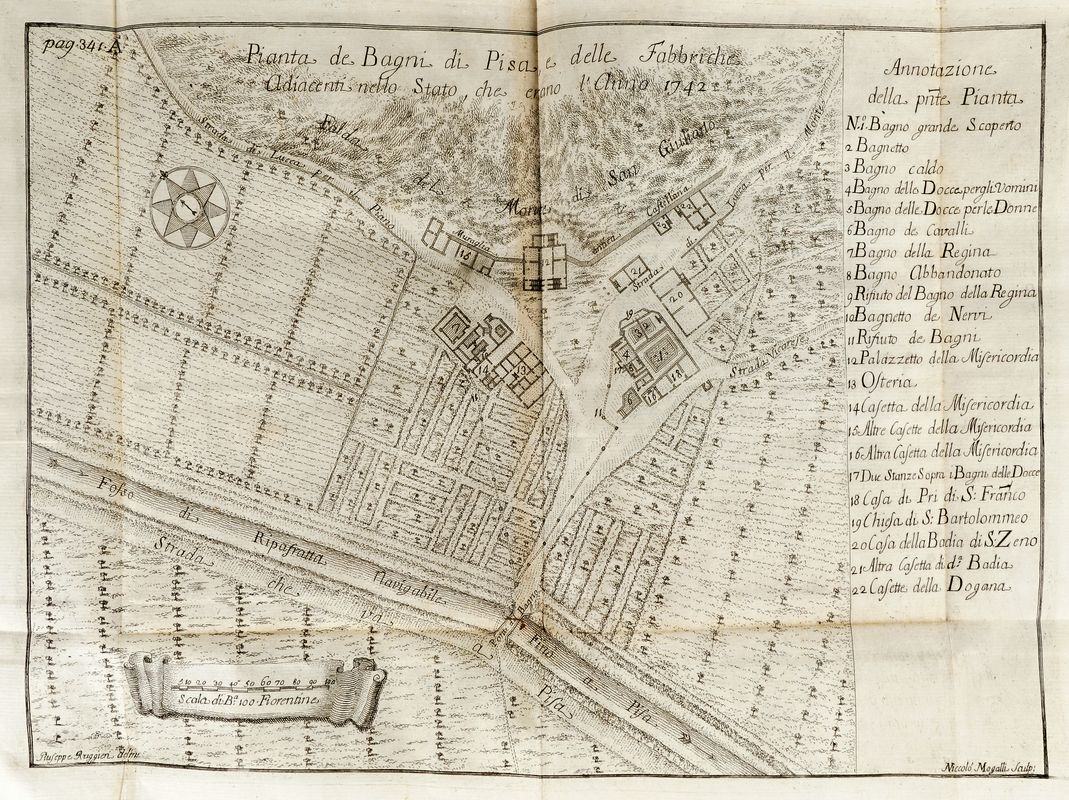 pag. 341. A
Pianta de Bagni di Pisa, e delle Fabbriche
Adiacenti nello Stato, che erano l'Anno 1742
Falda
del
Monte di San Giuliano
Strada di Lucca per il Piano
Muraglia
Antica
Castellina
Strada di Lucca per il Monte
Strada Vicarese
Fosso di Ripafratta Navigabile
Fino a Pisa
Strada che va a Pisa
10 20 30 40 50 60 70 80 90 100
Scala di B.a 100 Fiorentine
Giuseppe Ruggieri delin.
Niccolò Mogalli Sculp:
Annotazione
della pñte Pianta
N.o 1. Bagno grande Scoperto
2 Bagnetto
3 Bagno caldo
4 Bagno delle Docce per gli Vomini
5 Bagno delle Docce per le Donne
6 Bagno de Cavalli
7 Bagno della Regina
8 Bagno Abbandonato
9 Rifiuto del Bagno della Regina
10 Bagnetto de Nervi
11 Rifiuto de Bagni
12 Palazzetto della Misericordia
13 Osteria
14 Casetta della Misericordia
15 Altre Casette della Misericordia
16 Altra Casetta della Misericordia
17 Due Stanze Sopra i Bagni delle Docce
18 Casa di Pri di S: Frañco
19 Chiesa di S: Bartolommeo
20 Casa della Badia di S: Zeno
21 Altra Casetta di d.a Badia
22 Casette della Dogana